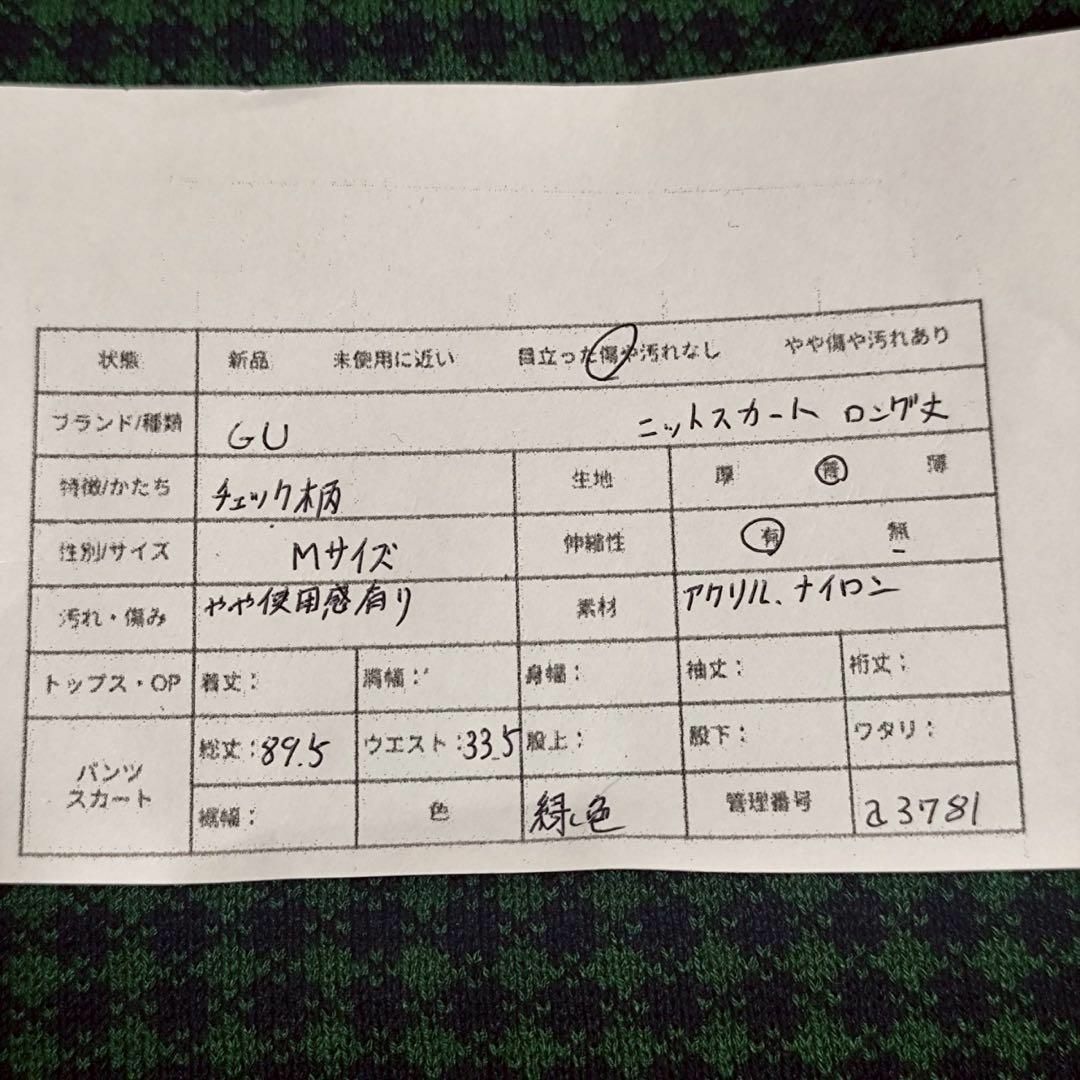 状態 新品 未使用に近い 目立った傷や汚れなし やや傷や汚れあり
ブランド/種類 GU ニットスカート ロング丈
特徴/かたち チェック柄 生地 厚 普 薄
性別/サイズ Mサイズ 伸縮性 有 無
汚れ・傷み やや使用感有り 素材 アクリル、ナイロン
トップス・OP 着丈: 肩幅: 身幅: 袖丈: 裄丈:
パンツ スカート 総丈:89.5 ウエスト:33.5 股上: 股下: ワタリ:
裾幅: 色 緑色 管理番号 a3781